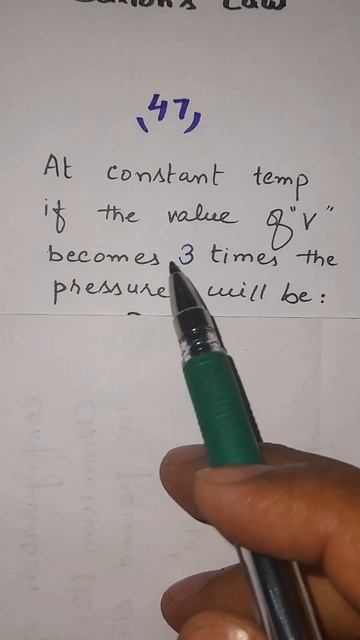 Law
,47,
At constant temp
if the value of "V"
becomes 3 times the
pressure will be: